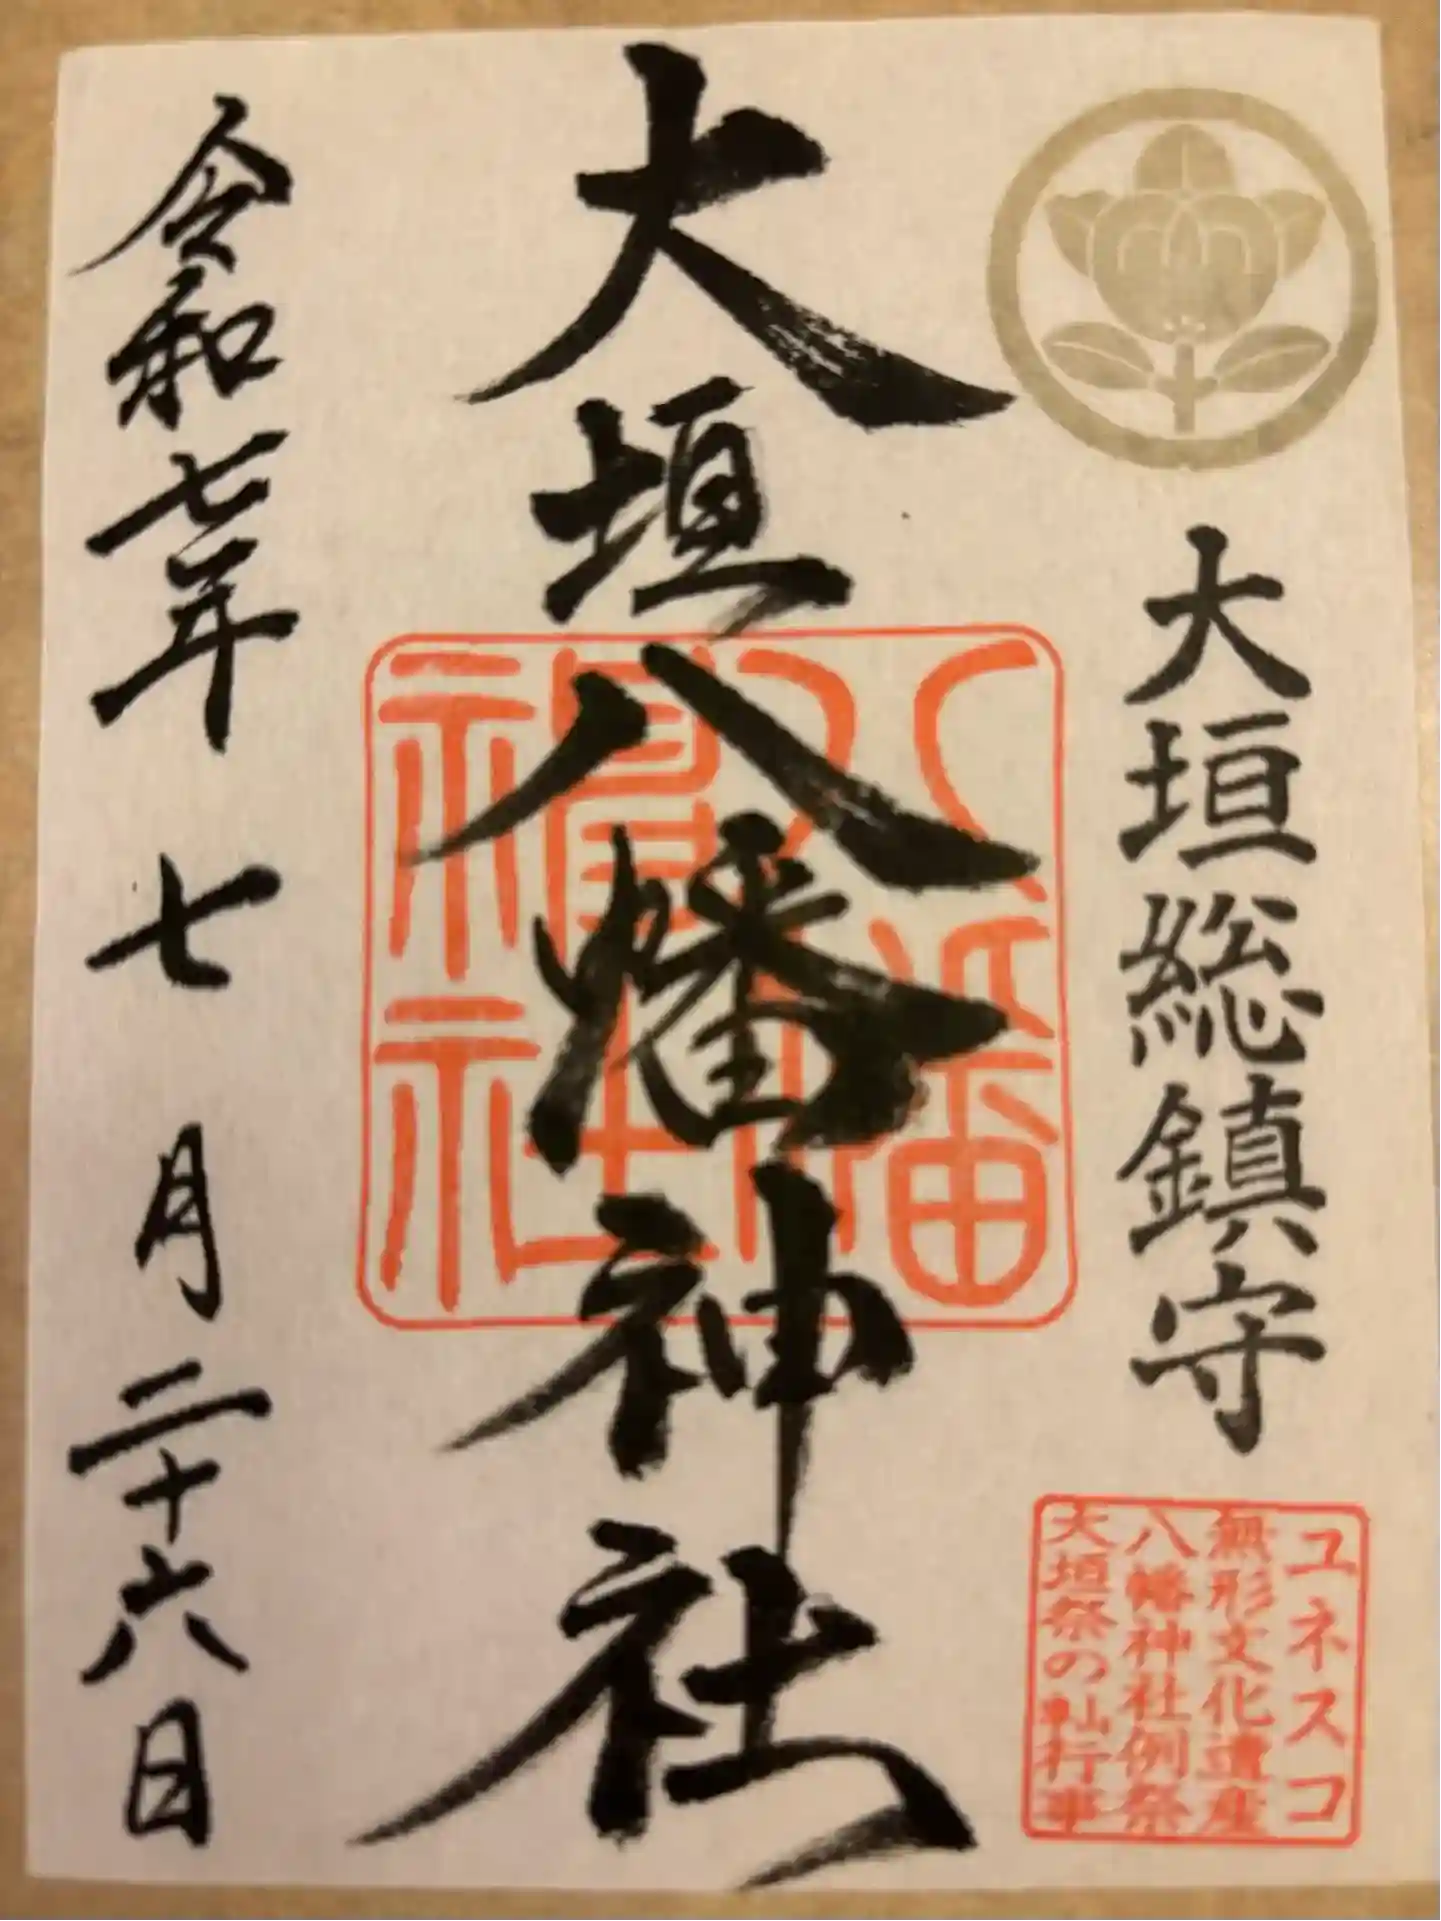 大垣総鎮守
ユネスコ
無形文化遺産
八幡神社例祭
大垣祭の䡄行事
大垣八幡神社
八幡神社
令和七年七月二十六日